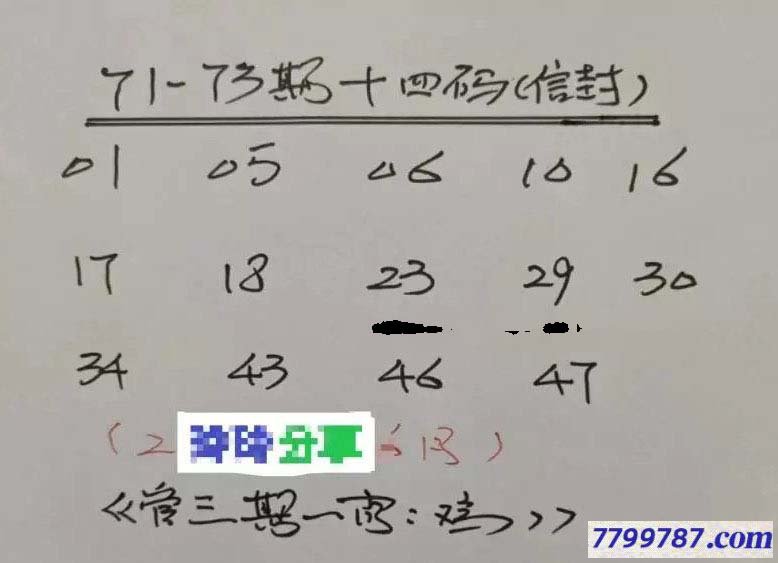 71-73期十四码(信封)
01 05 06 10 16
17 18 23 29 30
34 43 46 47
(2 分享 )
《管三期一肖:鸡》
7799787.com